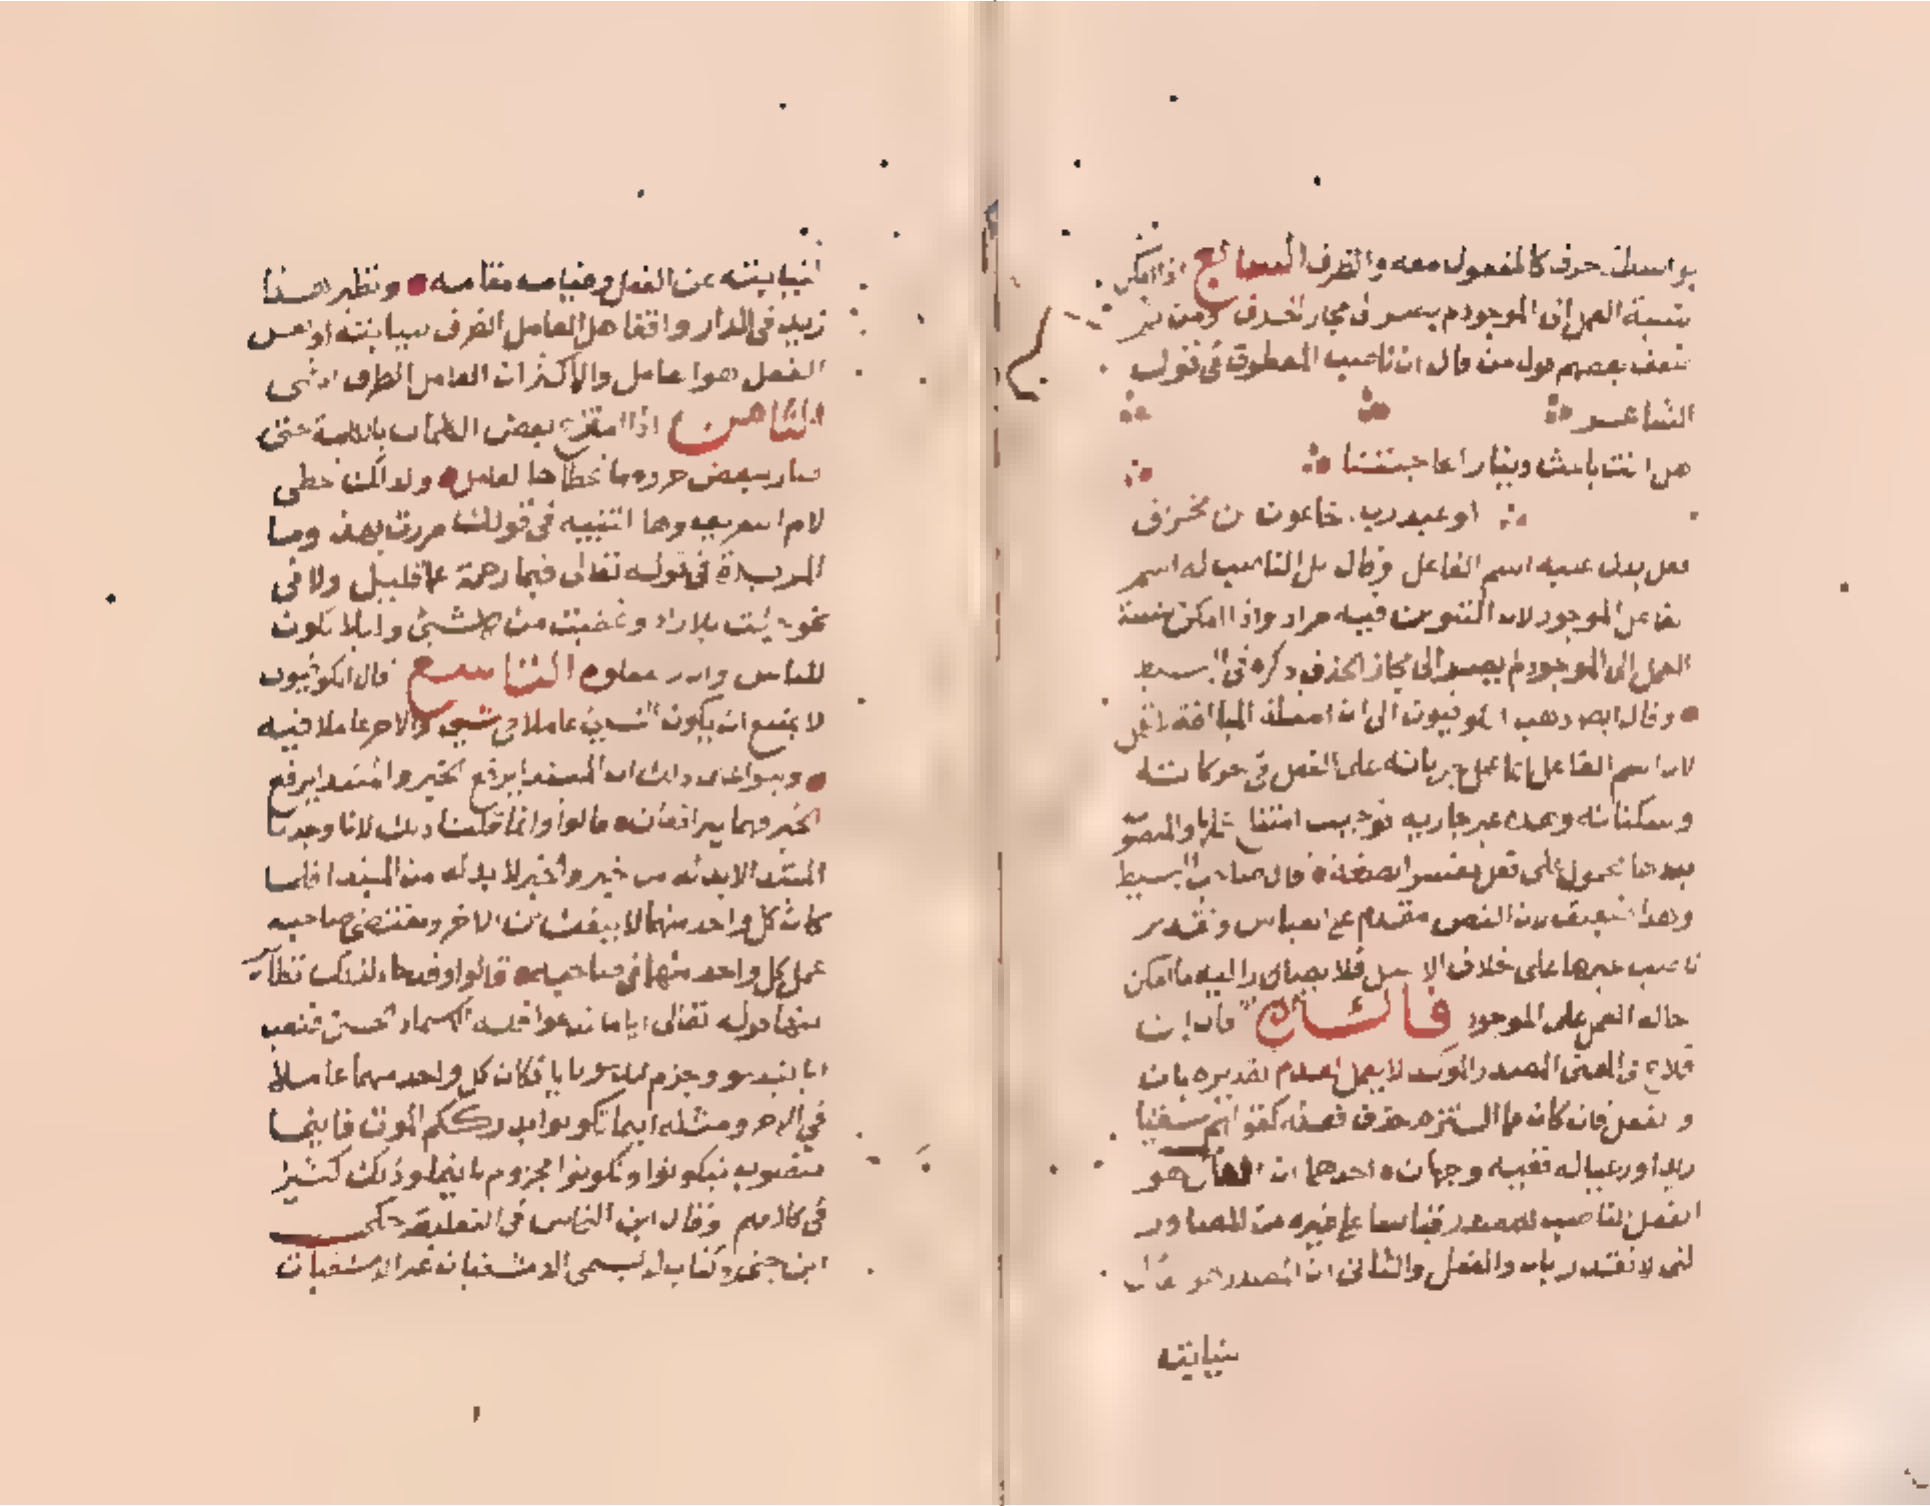 بواسطة حرف كالمفعول معه والظرف السابع اذا امكن
نسبة العمل الى الموجود لم يصر الى مجاز الحذف ومن ثم
ضعف بعضهم قول من قال ان ناصب المعطوف في قول
الشاعر
هل انت باعث دينار لحاجتنا
او عبد رب اخا عون بن مخراق
فعل يدل عليه اسم الفاعل وقال بل الناصب له اسم
الفاعل الموجود لان التنوين فيه مراد واذا امكن نسبة
العمل الى الموجود لم يصر الى مجاز الحذف ذكره في البسيط
وقال ايضا ذهب الكوفيون الى ان امثلة المبالغة لا تعمل
لان اسم الفاعل انما عمل لجريانه على الفعل في حركاته
وسكناته وهذه غير جاريه فوجب امتناع عملها والمنصوب
بعدها محمول على فعل يفسره الصفة قال صاحب البسيط
وهذا ضعيف لان النص مقدم على القياس وتقدير
ناصب غيرها على خلاف الاصل فلا يصار اليه ما امكن
احالة العمل على الموجود قال ابن
فلاح في المغني المصدر المؤكد لا يعمل لعدم تقديره بان
والفعل فان كان مما التزم حذف فعله كقولهم سقيا
زيدا ورعيا له ففيه وجهان احدهما ان العامل هو
الفعل الناصب للمصدر قياسا على غيره من المصادر
التي لا تقدر بان والفعل والثاني ان المصدر هو عامل
لنيابته
لنيابته عن الفعل وقيامه مقامه ونظير هذا
زيد في الدار واقفا هل العامل الظرف لنيابته او
الفعل هو العامل والاكثر ان العامل الظرف انتهى
الثامن اذا امتزج بعض الكلمات بالكلمة حتى
صار بعض حروفها تخطاها العامل ولذلك تخطى
لام التعريف وها التنبيه في قولك مررت بهذا وما
المزيدة في قوله تعالى فبما رحمة عما قليل ولا في
نحو جئت بلا زاد وغضبت من لا شيء و لئلا يكون
للناس و تفعلوه التاسع قال الكوفيون
لا يمتنع ان يكون الشيء عاملا في شيء والاخر عاملا فيه
وبنوا على ذلك ان المبتدا يرفع الخبر والخبر يرفع
المبتدا فهما يترافعان قالوا وانما قلنا ذلك لانا وجدنا
المبتدا لا بد له من خبر والخبر لا بد له من المبتدا فلما
كان كل واحد منهما لا ينفك من الاخر ويقتضي صاحبه
عمل كل واحد منهما في صاحبه قالوا وقد جاء لذلك نظائر
منها قوله تعالى ايا ما تدعوا فله الاسماء الحسنى فنصب
ايا بتدعوا وجزم تدعوا بايا فكان كل واحد منهما عاملا
في الاخر ومثله اينما تكونوا يدرككم الموت فاينما
منصوب بتكونوا وتكونوا مجزوم باينما وذلك كثير
في كلامهم وقال ابن النحاس في التعليقة حكى
ابن جني في كتاب له يسمى الدمشقيات غير الدمشقيات